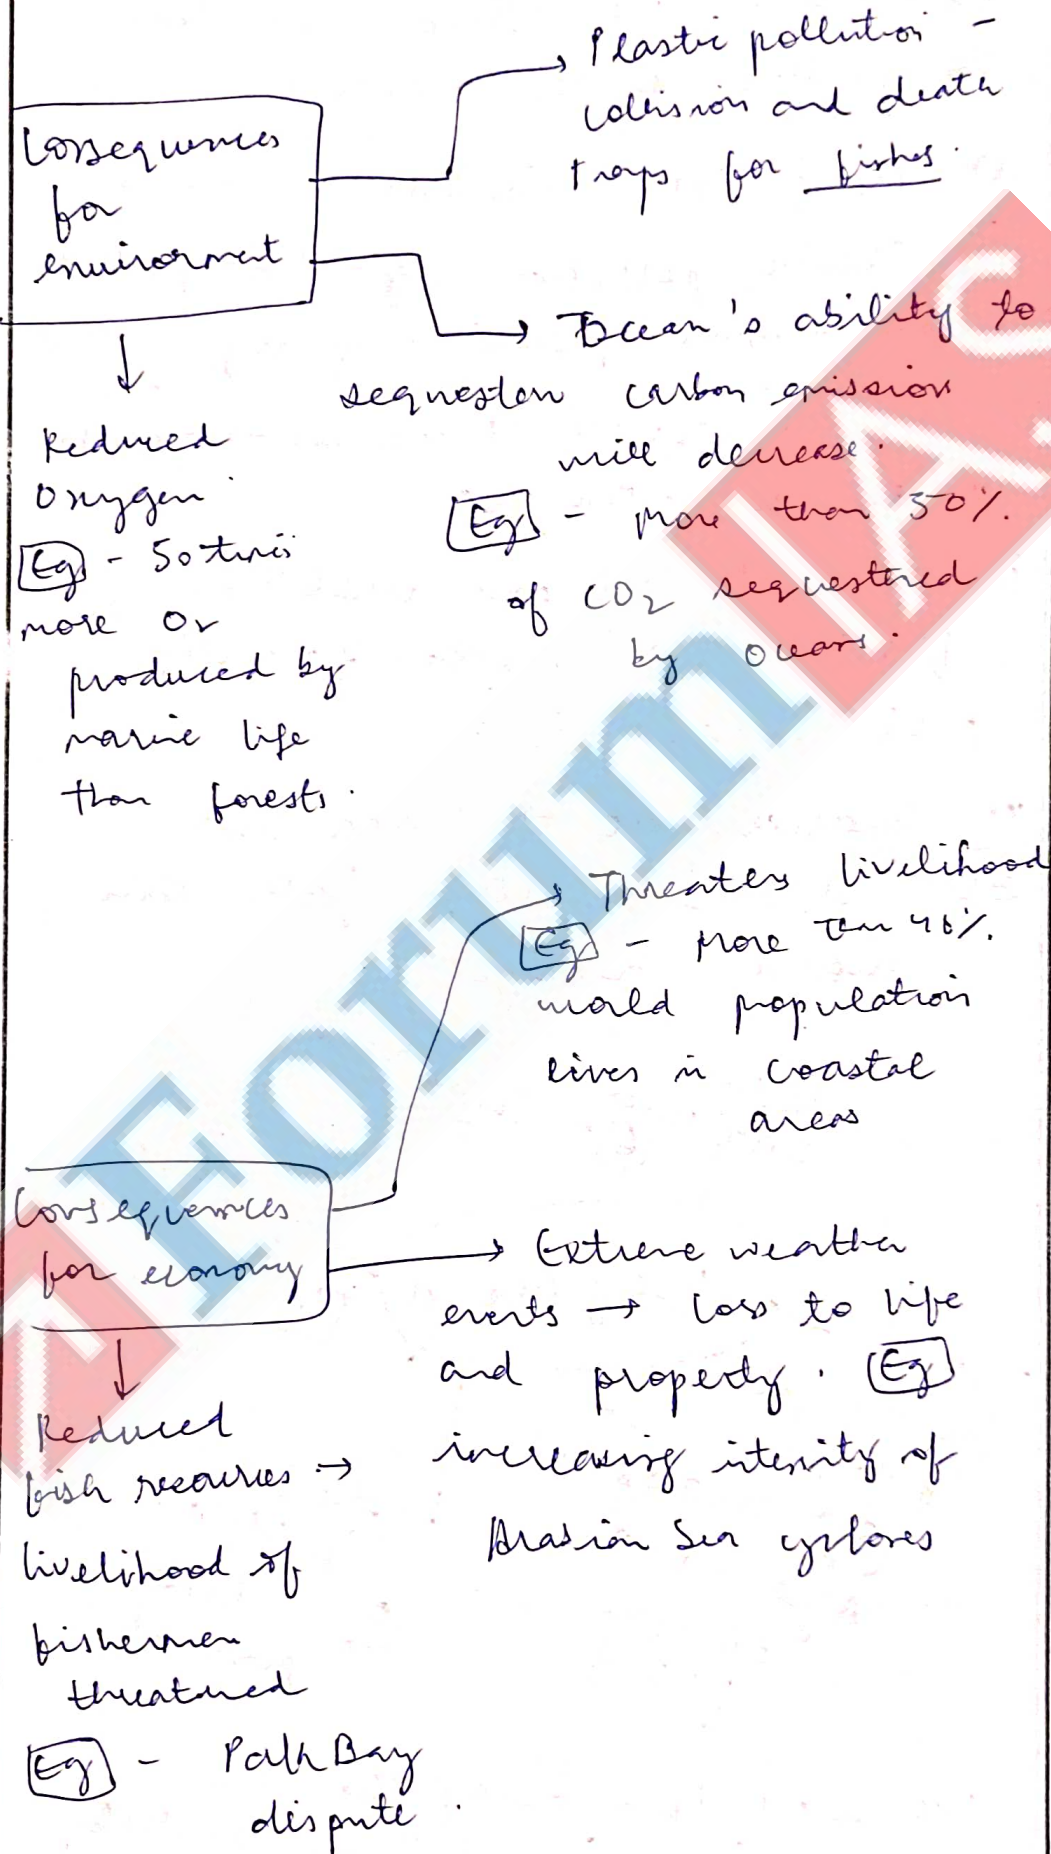 Consequences
for
environment
→ Plastic pollution -
collision and death
traps for fishes.
→ Ocean's ability to
sequester carbon emission
will decrease.
Eg - More than 50%
of CO2 sequestered
by oceans.
↓
Reduced
oxygen.
Eg - 50 times
more O2
produced by
marine life
than forests.
Consequences
for economy
→ Threatens livelihood
Eg - More than 46%
world population
lives in coastal
areas
→ Extreme weather
events → loss to life
and property. Eg
increasing intensity of
Arabian Sea cyclones
↓
Reduced
fish resources →
livelihood of
fishermen
threatened
Eg - Palk Bay
dispute.
Forum IAS